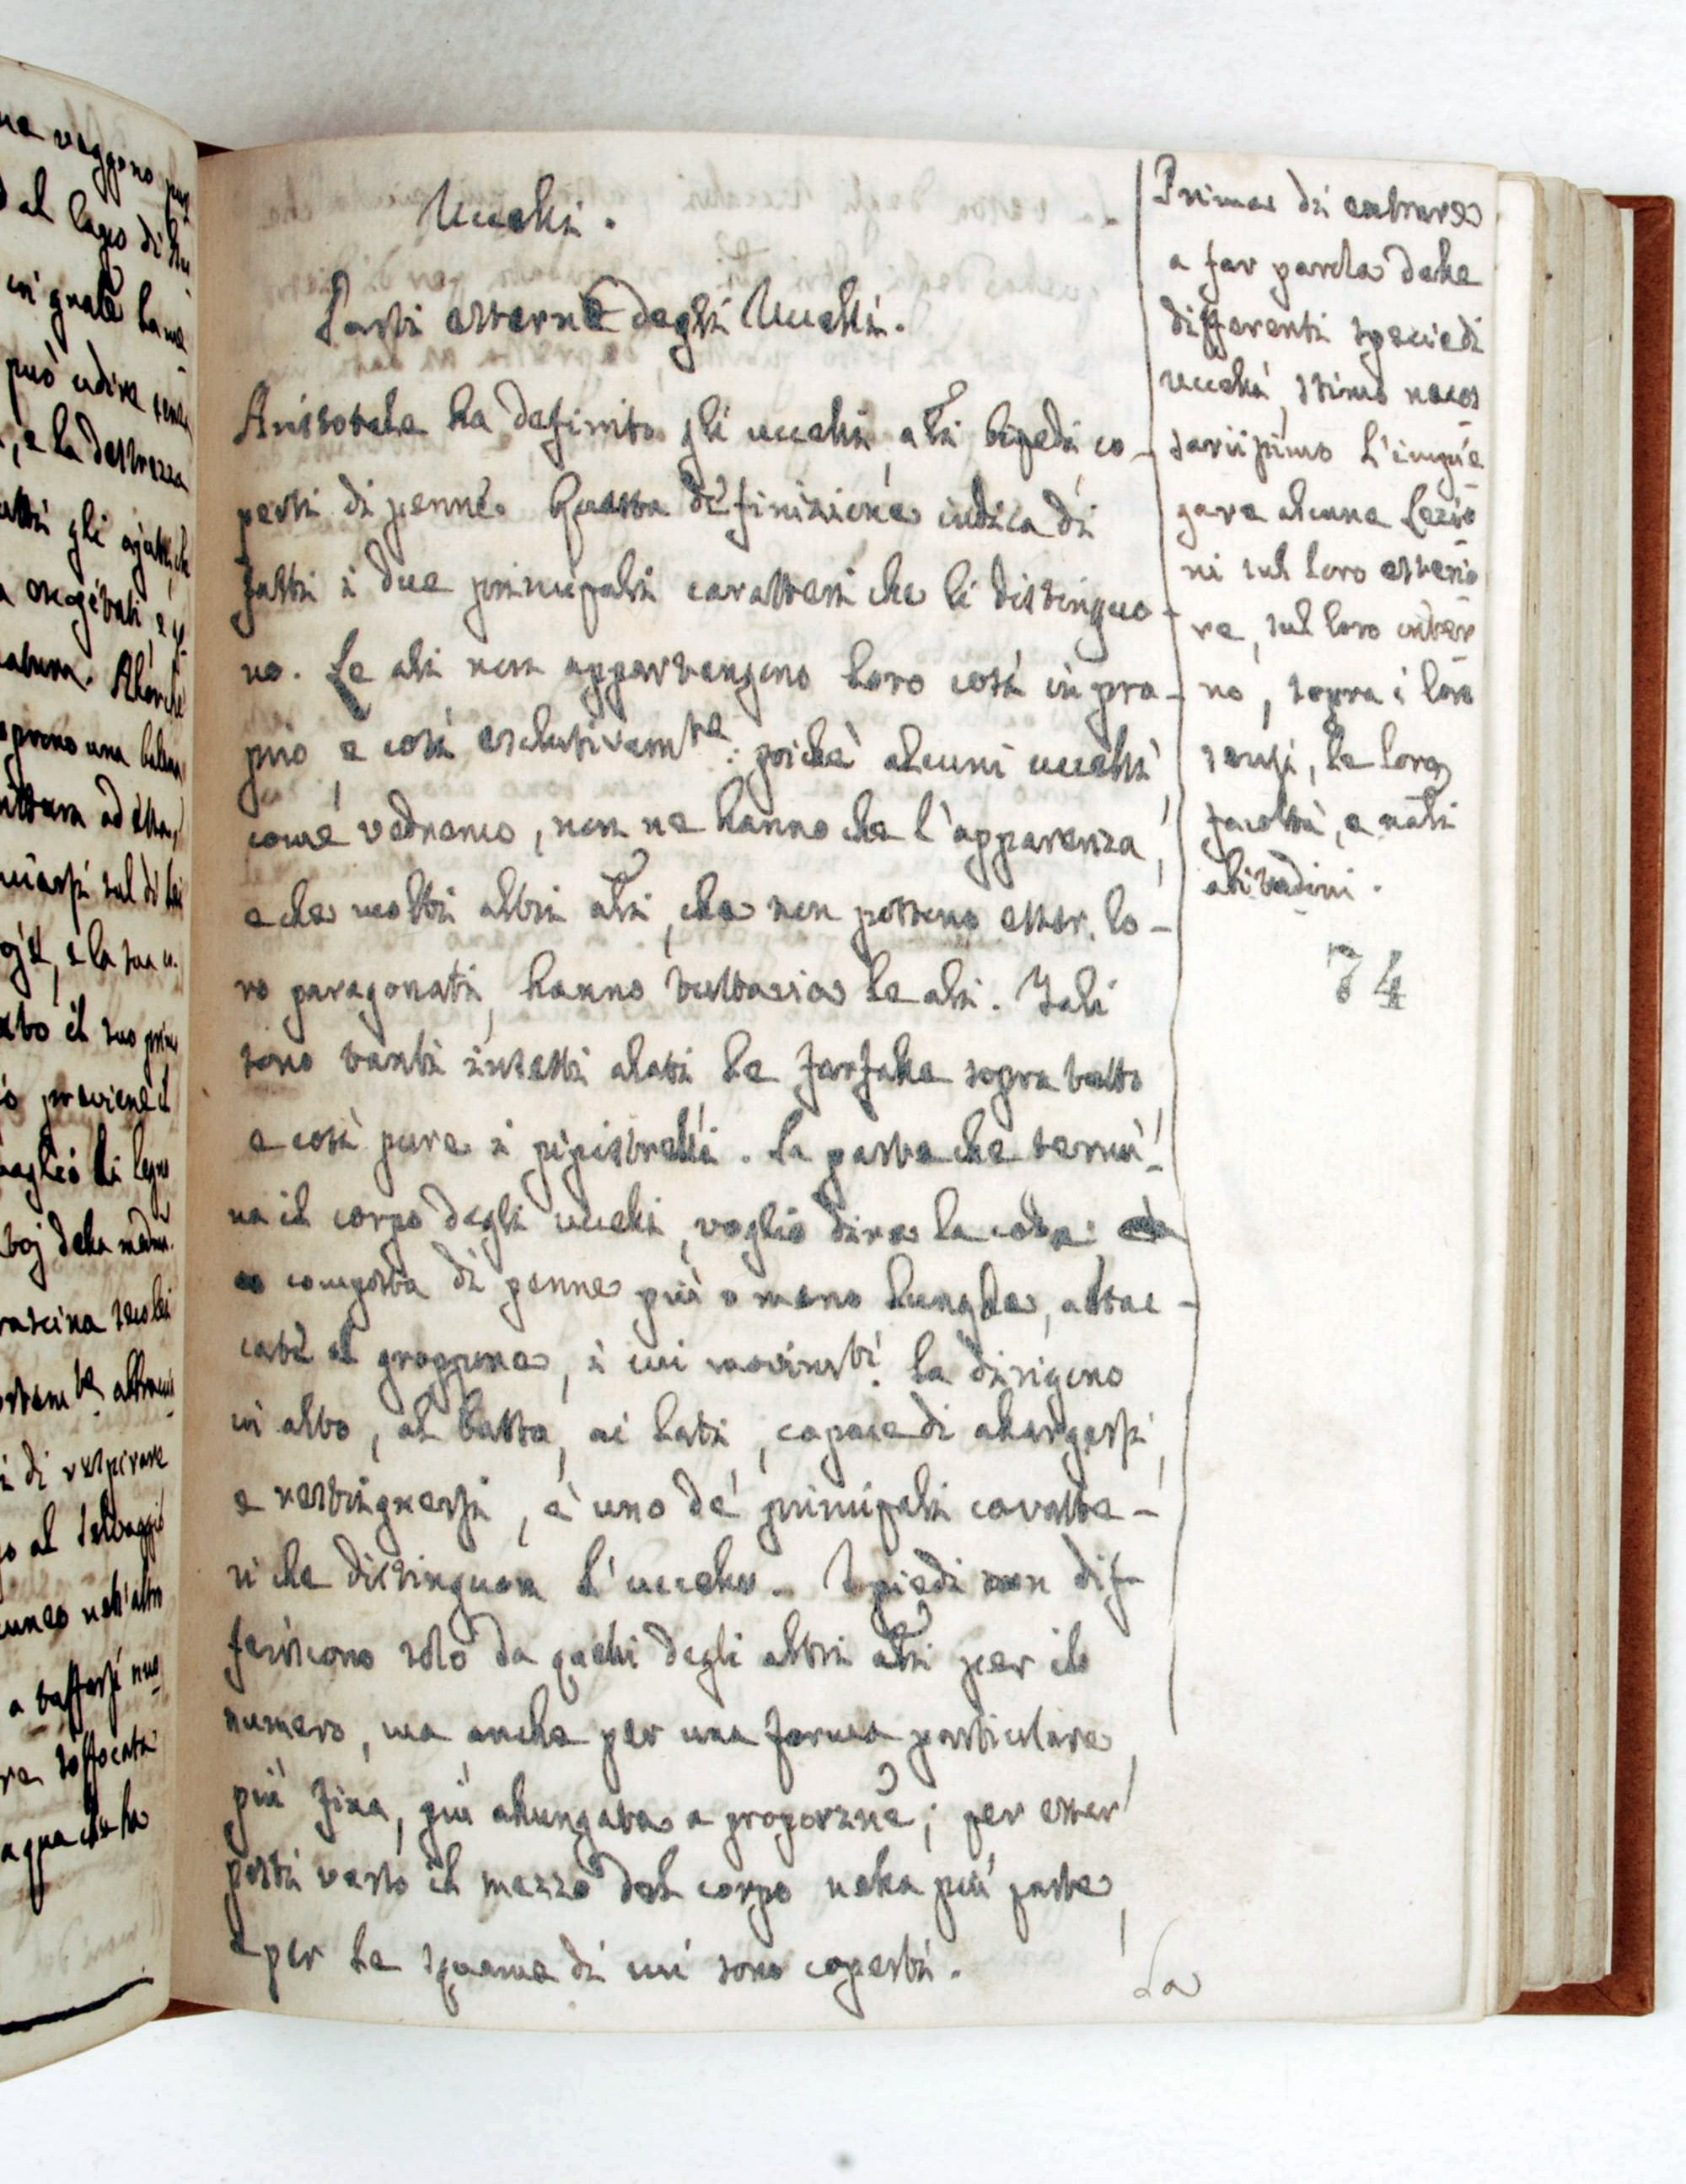 na veggono pur
al lago di
in quale la
può udire senza
, e la destrezza
gli ajuti, che
natura. Allorchè
aprono una
ad essa,
sul di lei
, e la sua
il suo
proviene il
di legno
della
seco lei
i di respirare
o al selvaggio
nell'altro
soffocata
acqua che ha
Uccelli.
Parti esterne degli Uccelli.
Aristotele ha definito gli uccelli, a͠li bipedi co-
perti di penne. Questa definizione indica di
fatti i due principali caratteri che li distinguo-
no. Le ali non appartengono loro così in pro-
prio, e così esclusivamte: poichè alcuni uccelli,
come vedremo, non ne hanno che l'apparenza,
e che molti altri a͠li, che non possono esser lo-
ro paragonati, hanno tuttavia le ali. Tali
sono tanti insetti alati le farfalle sopra tutto
e così pure i pipistrelli. La parte che termi-
na il corpo degli uccelli, voglio dire la coda;
composta di penne più o meno lunghe, attac-
cate al groppone, i cui movimti la dirigono
in alto, al basso, ai lati, capace di allargarsi,
e restringnersi, è uno de' principali caratte-
ri che distinguon l'uccello. I piedi non dif-
feriscono solo da quelli degli altri a͠li per il
numero, ma anche per una forma particolare,
più fina, più allungata a proporzne; per esser
posti verso il mezzo del corpo nella più parte,
e per le squame di cui sono coperti.
La
Prima di entrare
a far parola delle
differenti specie di
uccelli, stimo neces
sariissimo l'impie
gare alcune Lezio
ni sul loro esterio
re, sul loro inter
no, sopra i loro
sensi, le loro
facoltà, e nali
abitudini.
74